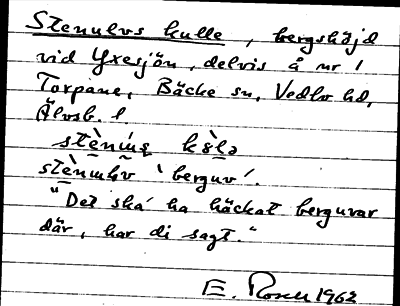 Stenulvs kulle, bergshöjd
vid Yxesjön, delvis å nr 1
Torpane, Bäcke sn, Vedbo hd,
Älvsb. l.
stènu̇s kòlə
stènulv 'berguv'.
"Det ska' ha häckat berguvar
där, har di sagt."
E. 1962